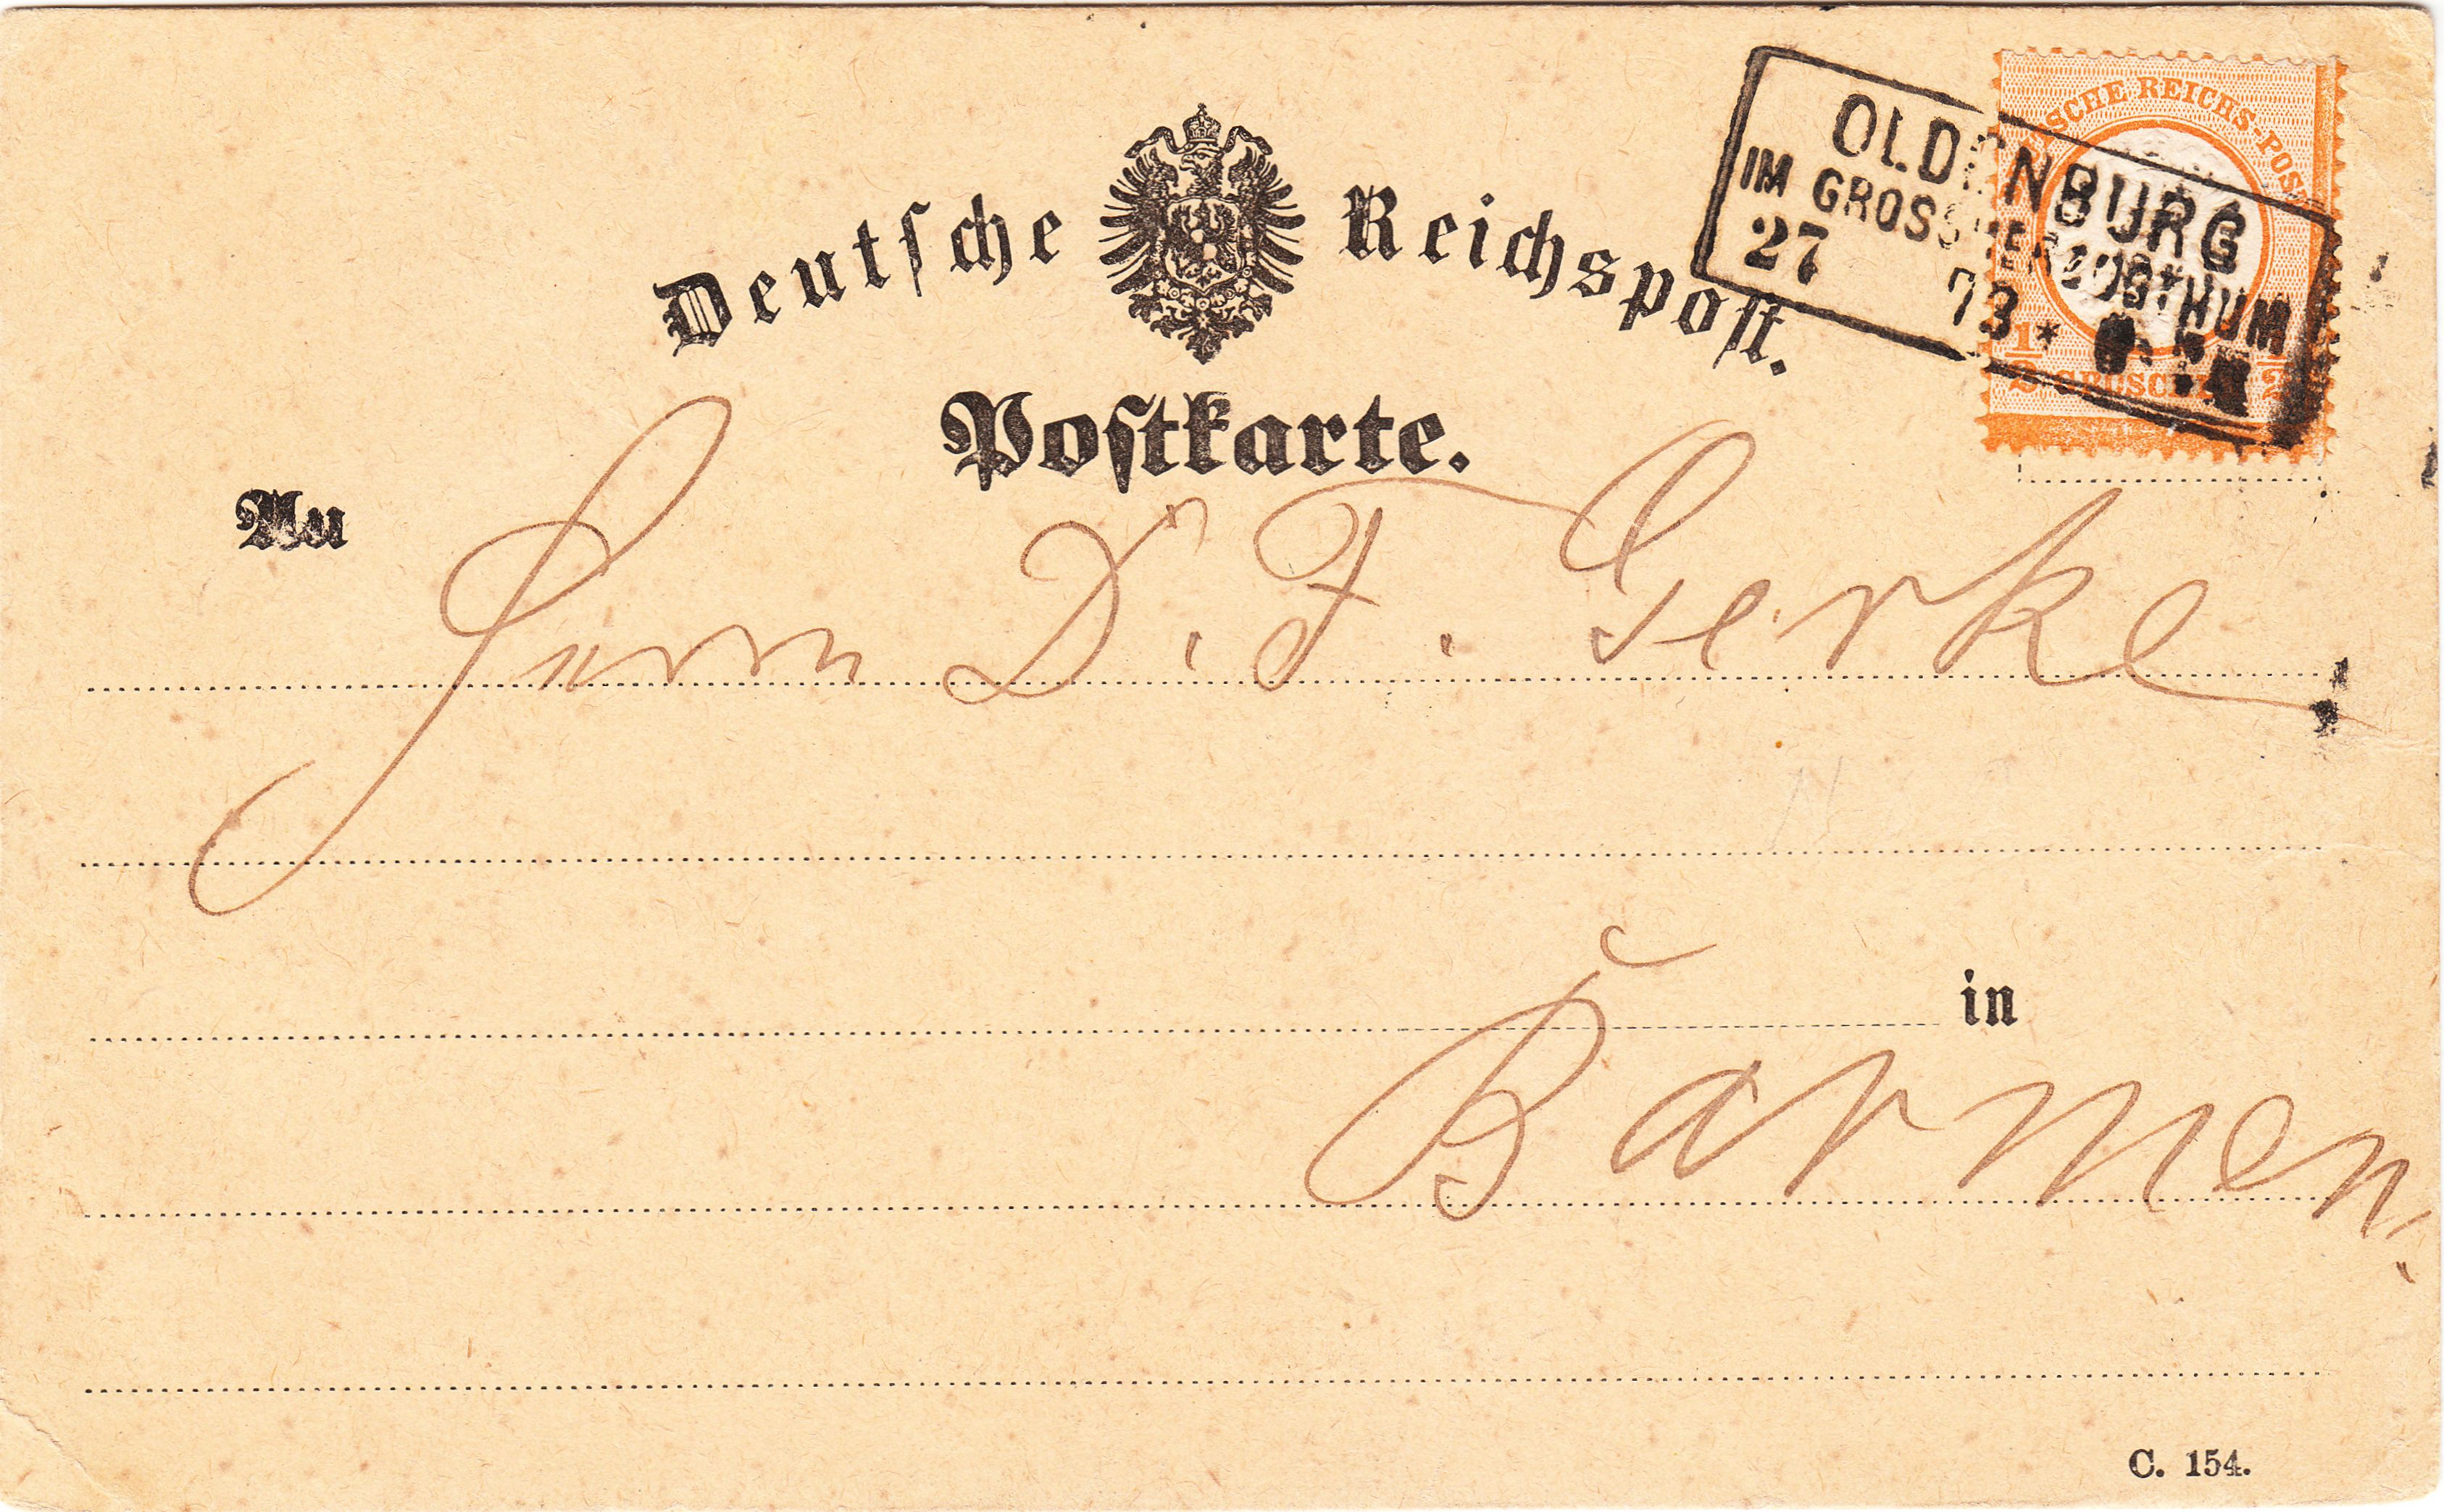 Deutsche Reichspost.
OLDENBURG
IM GROSSHERZOGTHUM
27 73 *
DEUTSCHE REICHS-POST
1/2 GROSCHEN 1/2
Postkarte.
An
Herrn D. F. Gerke
in
Barmen.
C. 154.